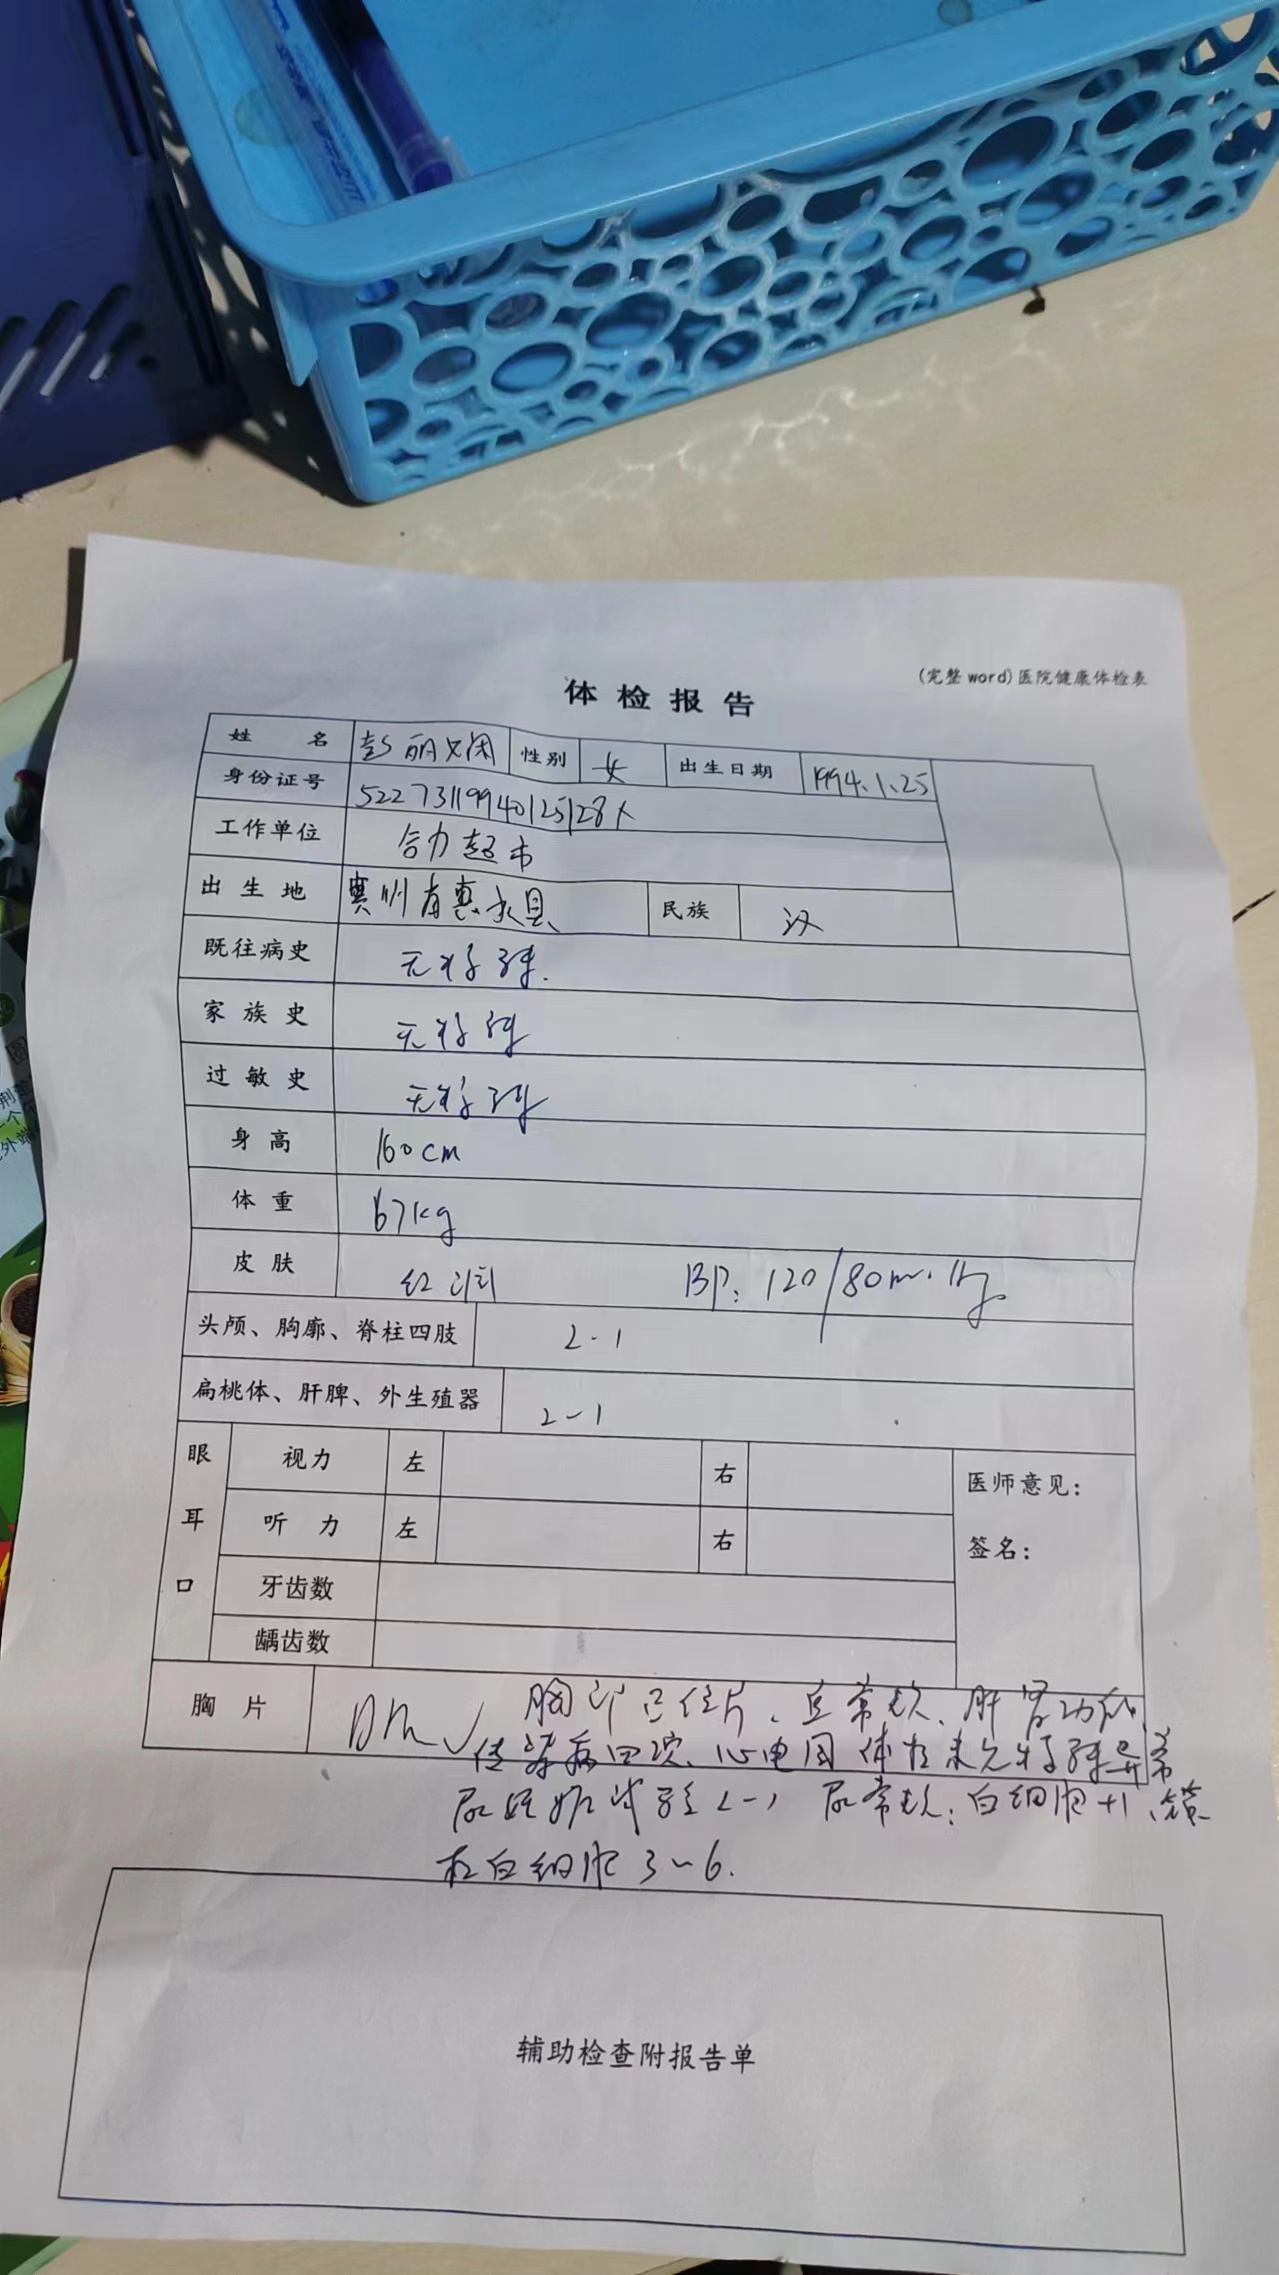 (完整word)医院健康体检表
体检报告
姓名 彭丽娴 性别 女 出生日期 1994.1.25
身份证号 52273119940125128X
工作单位 合力超市
出生地 贵州省惠水县 民族 汉
既往病史 无特殊.
家族史 无特殊
过敏史 无特殊
身高 160cm
体重 67kg
皮肤 红润 BP: 120/80mmHg
头颅、胸廓、脊柱四肢 (-)
扁桃体、肝脾、外生殖器 (-)
眼耳口
视力 左 右 医师意见:
听力 左 右 签名:
牙齿数
龋齿数
胸片 胸部正位片、血常规、肝肾功能、
传染病四项、心电图 体检未见特殊异常
尿妊娠试验(-) 尿常规:白细胞+1、镜
检白细胞3~6.
辅助检查附报告单